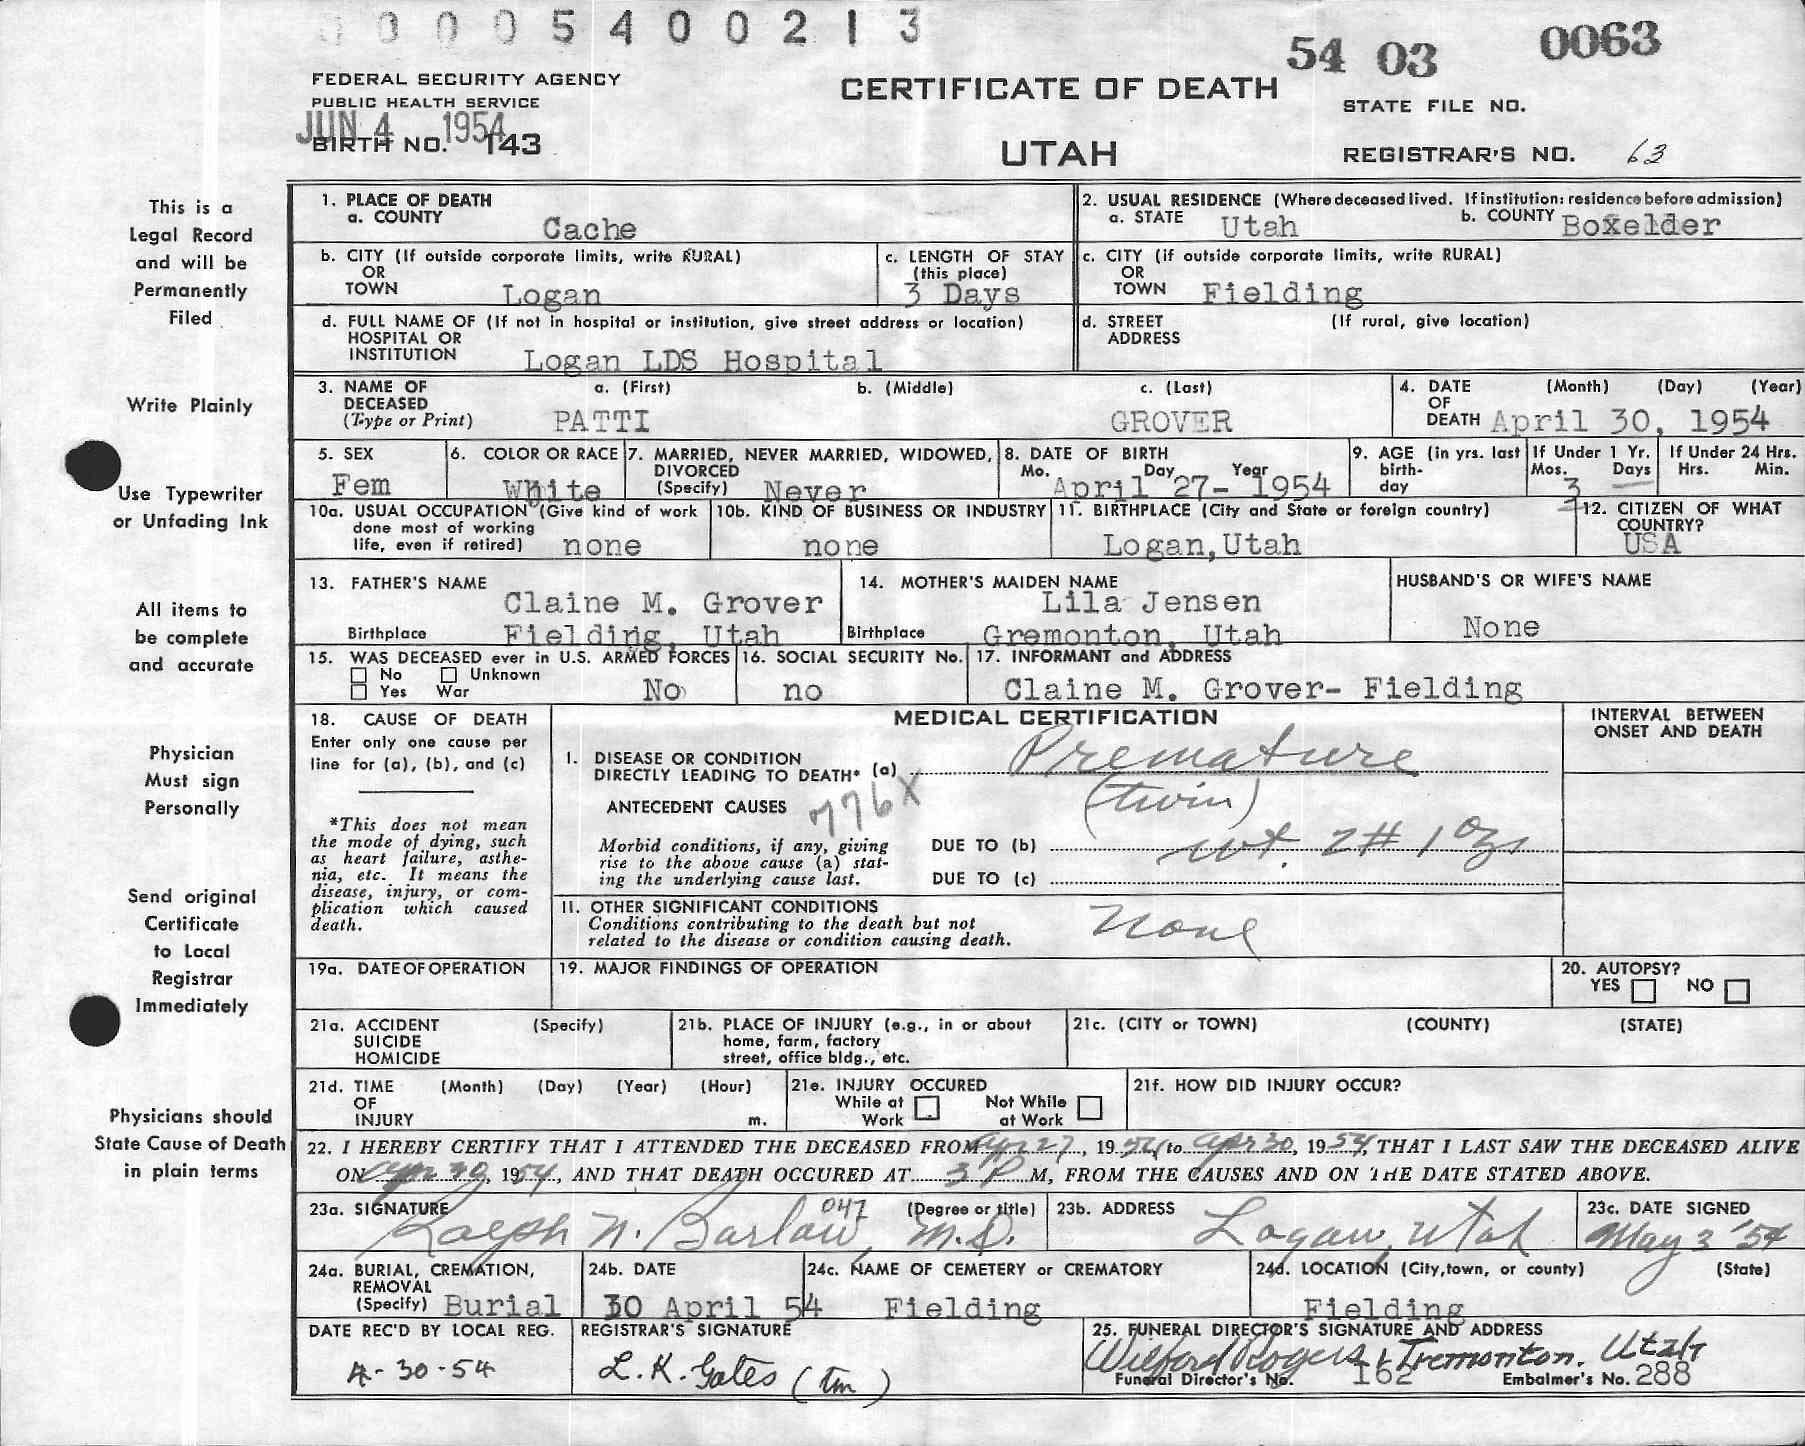 0 0 0 0 5 4 0 0 2 1 3
54 03 0063
FEDERAL SECURITY AGENCY
PUBLIC HEALTH SERVICE
JUN 4 1954
BIRTH NO. 143
CERTIFICATE OF DEATH
UTAH
STATE FILE NO.
REGISTRAR'S NO. 63
This is a
Legal Record
and will be
Permanently
Filed
Write Plainly
Use Typewriter
or Unfading Ink
All items to
be complete
and accurate
Physician
Must sign
Personally
Send original
Certificate
to Local
Registrar
Immediately
Physicians should
State Cause of Death
in plain terms
1. PLACE OF DEATH
a. COUNTY Cache
2. USUAL RESIDENCE (Where deceased lived. If institution: residence before admission)
a. STATE Utah b. COUNTY Boxelder
b. CITY (If outside corporate limits, write RURAL)
OR
TOWN Logan
c. LENGTH OF STAY
(this place)
3 Days
c. CITY (if outside corporate limits, write RURAL)
OR
TOWN Fielding
d. FULL NAME OF (If not in hospital or institution, give street address or location)
HOSPITAL OR
INSTITUTION Logan LDS Hospital
d. STREET (If rural, give location)
ADDRESS
3. NAME OF a. (First) b. (Middle) c. (Last)
DECEASED
(Type or Print) PATTI GROVER
4. DATE (Month) (Day) (Year)
OF
DEATH April 30, 1954
5. SEX
Fem
6. COLOR OR RACE
White
7. MARRIED, NEVER MARRIED, WIDOWED,
DIVORCED
(Specify) Never
8. DATE OF BIRTH
Mo. Day Year
April 27- 1954
9. AGE (in yrs. last
birth-
day
If Under 1 Yr.
Mos. Days
3
If Under 24 Hrs.
Hrs. Min.
10a. USUAL OCCUPATION (Give kind of work
done most of working
life, even if retired) none
10b. KIND OF BUSINESS OR INDUSTRY
none
11. BIRTHPLACE (City and State or foreign country)
Logan,Utah
12. CITIZEN OF WHAT
COUNTRY?
USA
13. FATHER'S NAME
Claine M. Grover
Birthplace Fielding, Utah
14. MOTHER'S MAIDEN NAME
Lila Jensen
Birthplace Gremonton, Utah
HUSBAND'S OR WIFE'S NAME
None
15. WAS DECEASED ever in U.S. ARMED FORCES
No Unknown
Yes War No
16. SOCIAL SECURITY No.
no
17. INFORMANT and ADDRESS
Claine M. Grover- Fielding
18. CAUSE OF DEATH
Enter only one cause per
line for (a), (b), and (c)
*This does not mean
the mode of dying, such
as heart failure, asthe-
nia, etc. It means the
disease, injury, or com-
plication which caused
death.
MEDICAL CERTIFICATION
INTERVAL BETWEEN
ONSET AND DEATH
I. DISEASE OR CONDITION
DIRECTLY LEADING TO DEATH* (a) Premature
ANTECEDENT CAUSES 776X (twin)
Morbid conditions, if any, giving
rise to the above cause (a) stat-
ing the underlying cause last.
DUE TO (b) wt. 2# 1 oz
DUE TO (c)
II. OTHER SIGNIFICANT CONDITIONS
Conditions contributing to the death but not
related to the disease or condition causing death.
None
19a. DATE OF OPERATION
19. MAJOR FINDINGS OF OPERATION
20. AUTOPSY?
YES NO
21a. ACCIDENT (Specify)
SUICIDE
HOMICIDE
21b. PLACE OF INJURY (e.g., in or about
home, farm, factory
street, office bldg., etc.
21c. (CITY or TOWN) (COUNTY) (STATE)
21d. TIME (Month) (Day) (Year) (Hour)
OF
INJURY m.
21e. INJURY OCCURED
While at Not While
Work at Work
21f. HOW DID INJURY OCCUR?
22. I HEREBY CERTIFY THAT I ATTENDED THE DECEASED FROM Apr 27, 1954 to Apr 30, 1954, THAT I LAST SAW THE DECEASED ALIVE
ON Apr 30, 1954, AND THAT DEATH OCCURED AT 3 P M, FROM THE CAUSES AND ON THE DATE STATED ABOVE.
23a. SIGNATURE 047 (Degree or title)
Ralph N. Barlow, M.D.
23b. ADDRESS
Logan, Utah
23c. DATE SIGNED
May 3 '54
24a. BURIAL, CREMATION,
REMOVAL
(Specify) Burial
24b. DATE
30 April 54
24c. NAME OF CEMETERY or CREMATORY
Fielding
24d. LOCATION (City, town, or county) (State)
Fielding
DATE REC'D BY LOCAL REG.
4-30-54
REGISTRAR'S SIGNATURE
L. K. Gates (tm)
25. FUNERAL DIRECTOR'S SIGNATURE AND ADDRESS
Wilford Rogers, Tremonton. Utah
Funeral Director's No. 162 Embalmer's No. 288